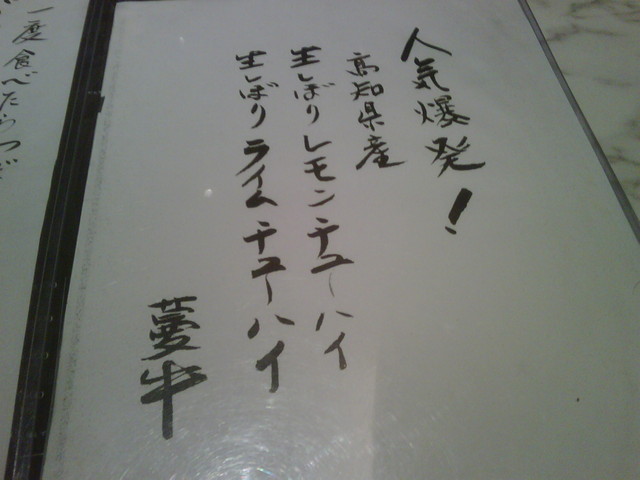 人気爆発!
高知県産
生しぼりレモンチューハイ
生しぼりライムチューハイ
夢牛
一度食べたらつ